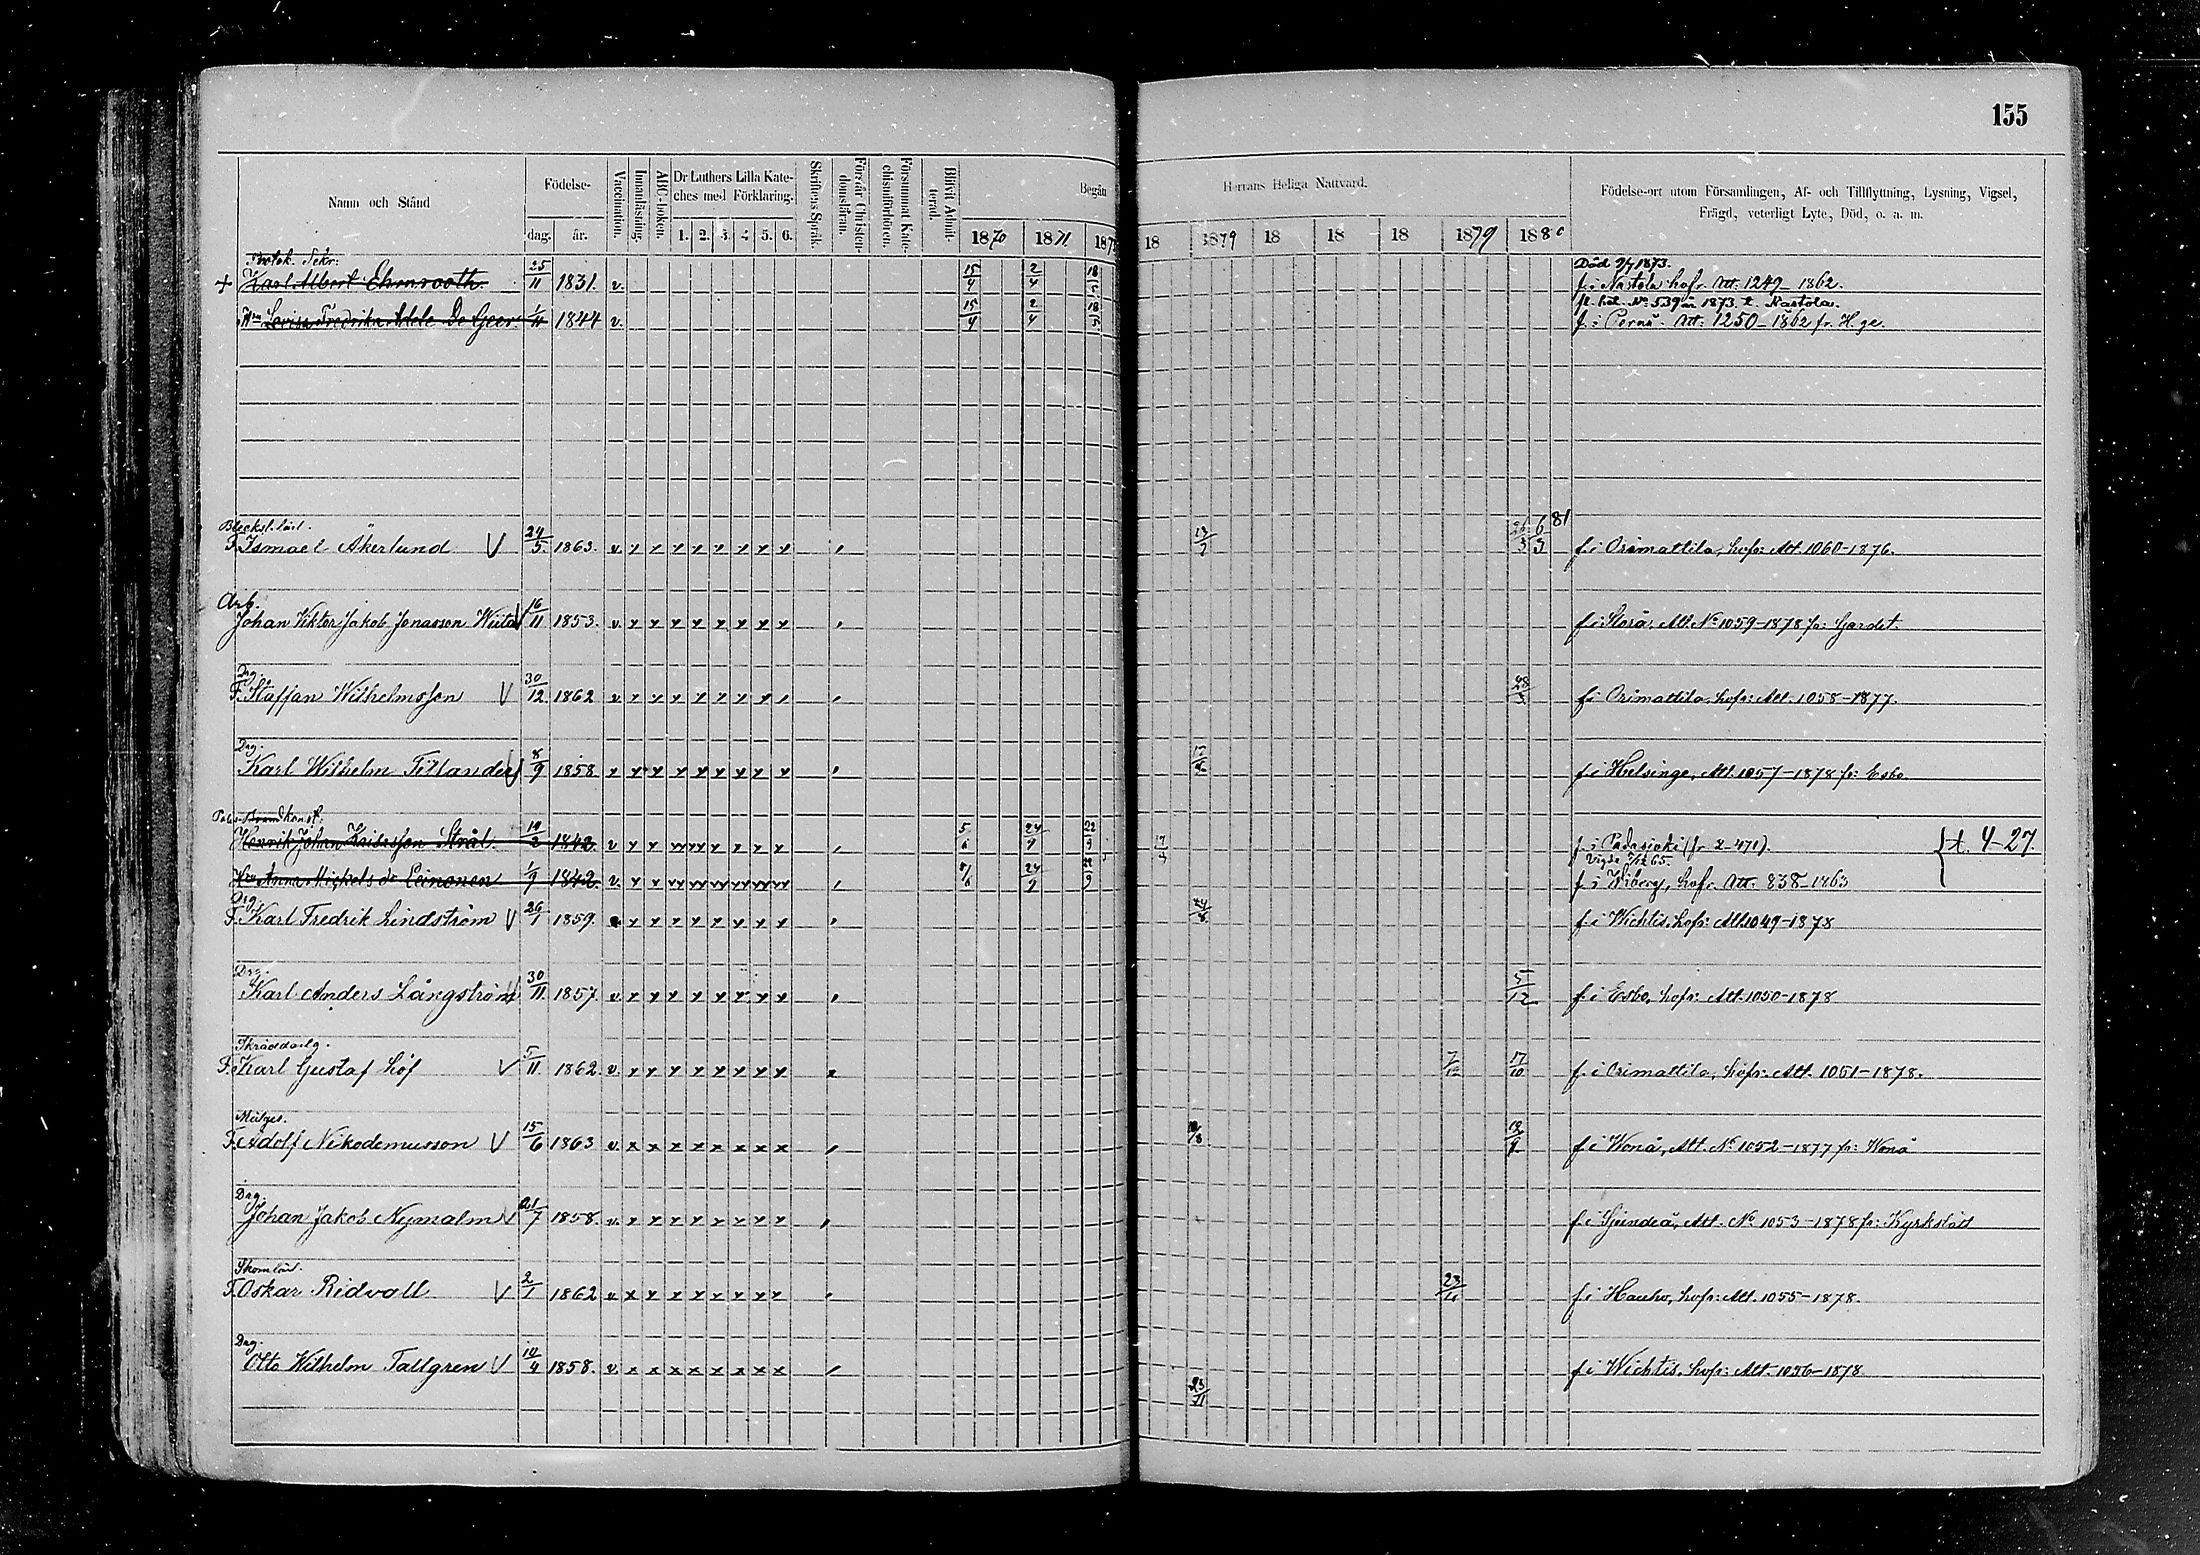 155
Namn och Stånd Födelse- dag. år. Vaccination. Innanläsning. ABC-boken. Dr Luthers Lilla Kateches med Förklaring. 1. 2. 3. 4. 5. 6. Skriftens Språk. Försvår Christendomsläran. Försummat Katechismiförhören. Blivit Admitterad. Begån Herrans Heliga Nattvard. Födelse-ort utom Församlingen, Af- och Tillflyttning, Lysning, Vigsel, Frägd, veterligt Lyte, Död, o. a. m.
1870 1871 187 18 1879 18 18 18 1879 1880
Protok. Sekr: Död 9/7 1873.
+ Karl Albert Ehrnrooth 25/11 1831. v. 15/4 2/4 18/5 f. i Nastola hofr. Att. 1249-1862.
fl. hel. No 539 1873 t. Nastola.
Hru Lovisa Fredrika Adele De Geer 1/11 1844 v. 15/4 2/4 18/5 f. i Pernå. Att: 1250-1862 fr. H.ge.
Bleksl. lärl.
F. Ismael Åkerlund V 24/5 1863. v 6/3 81 f. i Orimattila, hofr: Att. 1060-1876.
Arb.
Johan Viktor Jakob Jonasson Wiita V 16/11 1853. v. f. i Storå, Att. No 1059-1878 fr: Gardet.
Drg.
F. Staffan Wilhelmsson V 30/12 1862 v 28/3 f. i Orimattila, hofr: Att. 1058-1877.
Drg.
Karl Wilhelm Titlander V 8/9 1858 f. i Helsinge, Att. 1057-1878 fr: Esbo
konst:
Henrik Johan Strål 19/2 1842 v 5/6 24/9 22/9 f. i Padasjoki (fr 2-471). t. 4-27.
Vigde 65.
Hru Anna Mickels dr Leinonen 1/9 1842. v. 24/9 f. i Wiborg, hofr. Att. 838-1863
Drg.
F. Karl Fredrik Lindström V 26/1 1859. f. i Wichtis. hofr: Att. 1049-1878
Drg.
Karl Anders Långström V 30/11 1857. v 5/12 f. i Esbo, hofr: Att. 1050-1878
Skräddarlg.
F. Karl Gustaf Löf V 5/11 1862. v. 7/12 17/10 f. i Orimattila, hofr: Att. 1051-1878.
F. Adolf Nikodemusson V 15/6 1863 v f. i Wonå, Att. No 1052-1877 fr: Wonå
Drg.
Johan Jakob Nymalm V 21/7 1858. v. f. i Sjundeå, Att. No 1053-1878 fr: Kyrkslätt
Skomlärl.
F. Oskar Ridvall V 2/1 1862 v f. i Hauho, hofr: Att. 1055-1878.
Drg.
Otto Wilhelm Tallgren V 10/4 1858. v f. i Wichtis. hofr: Att. 1056-1878
23/11